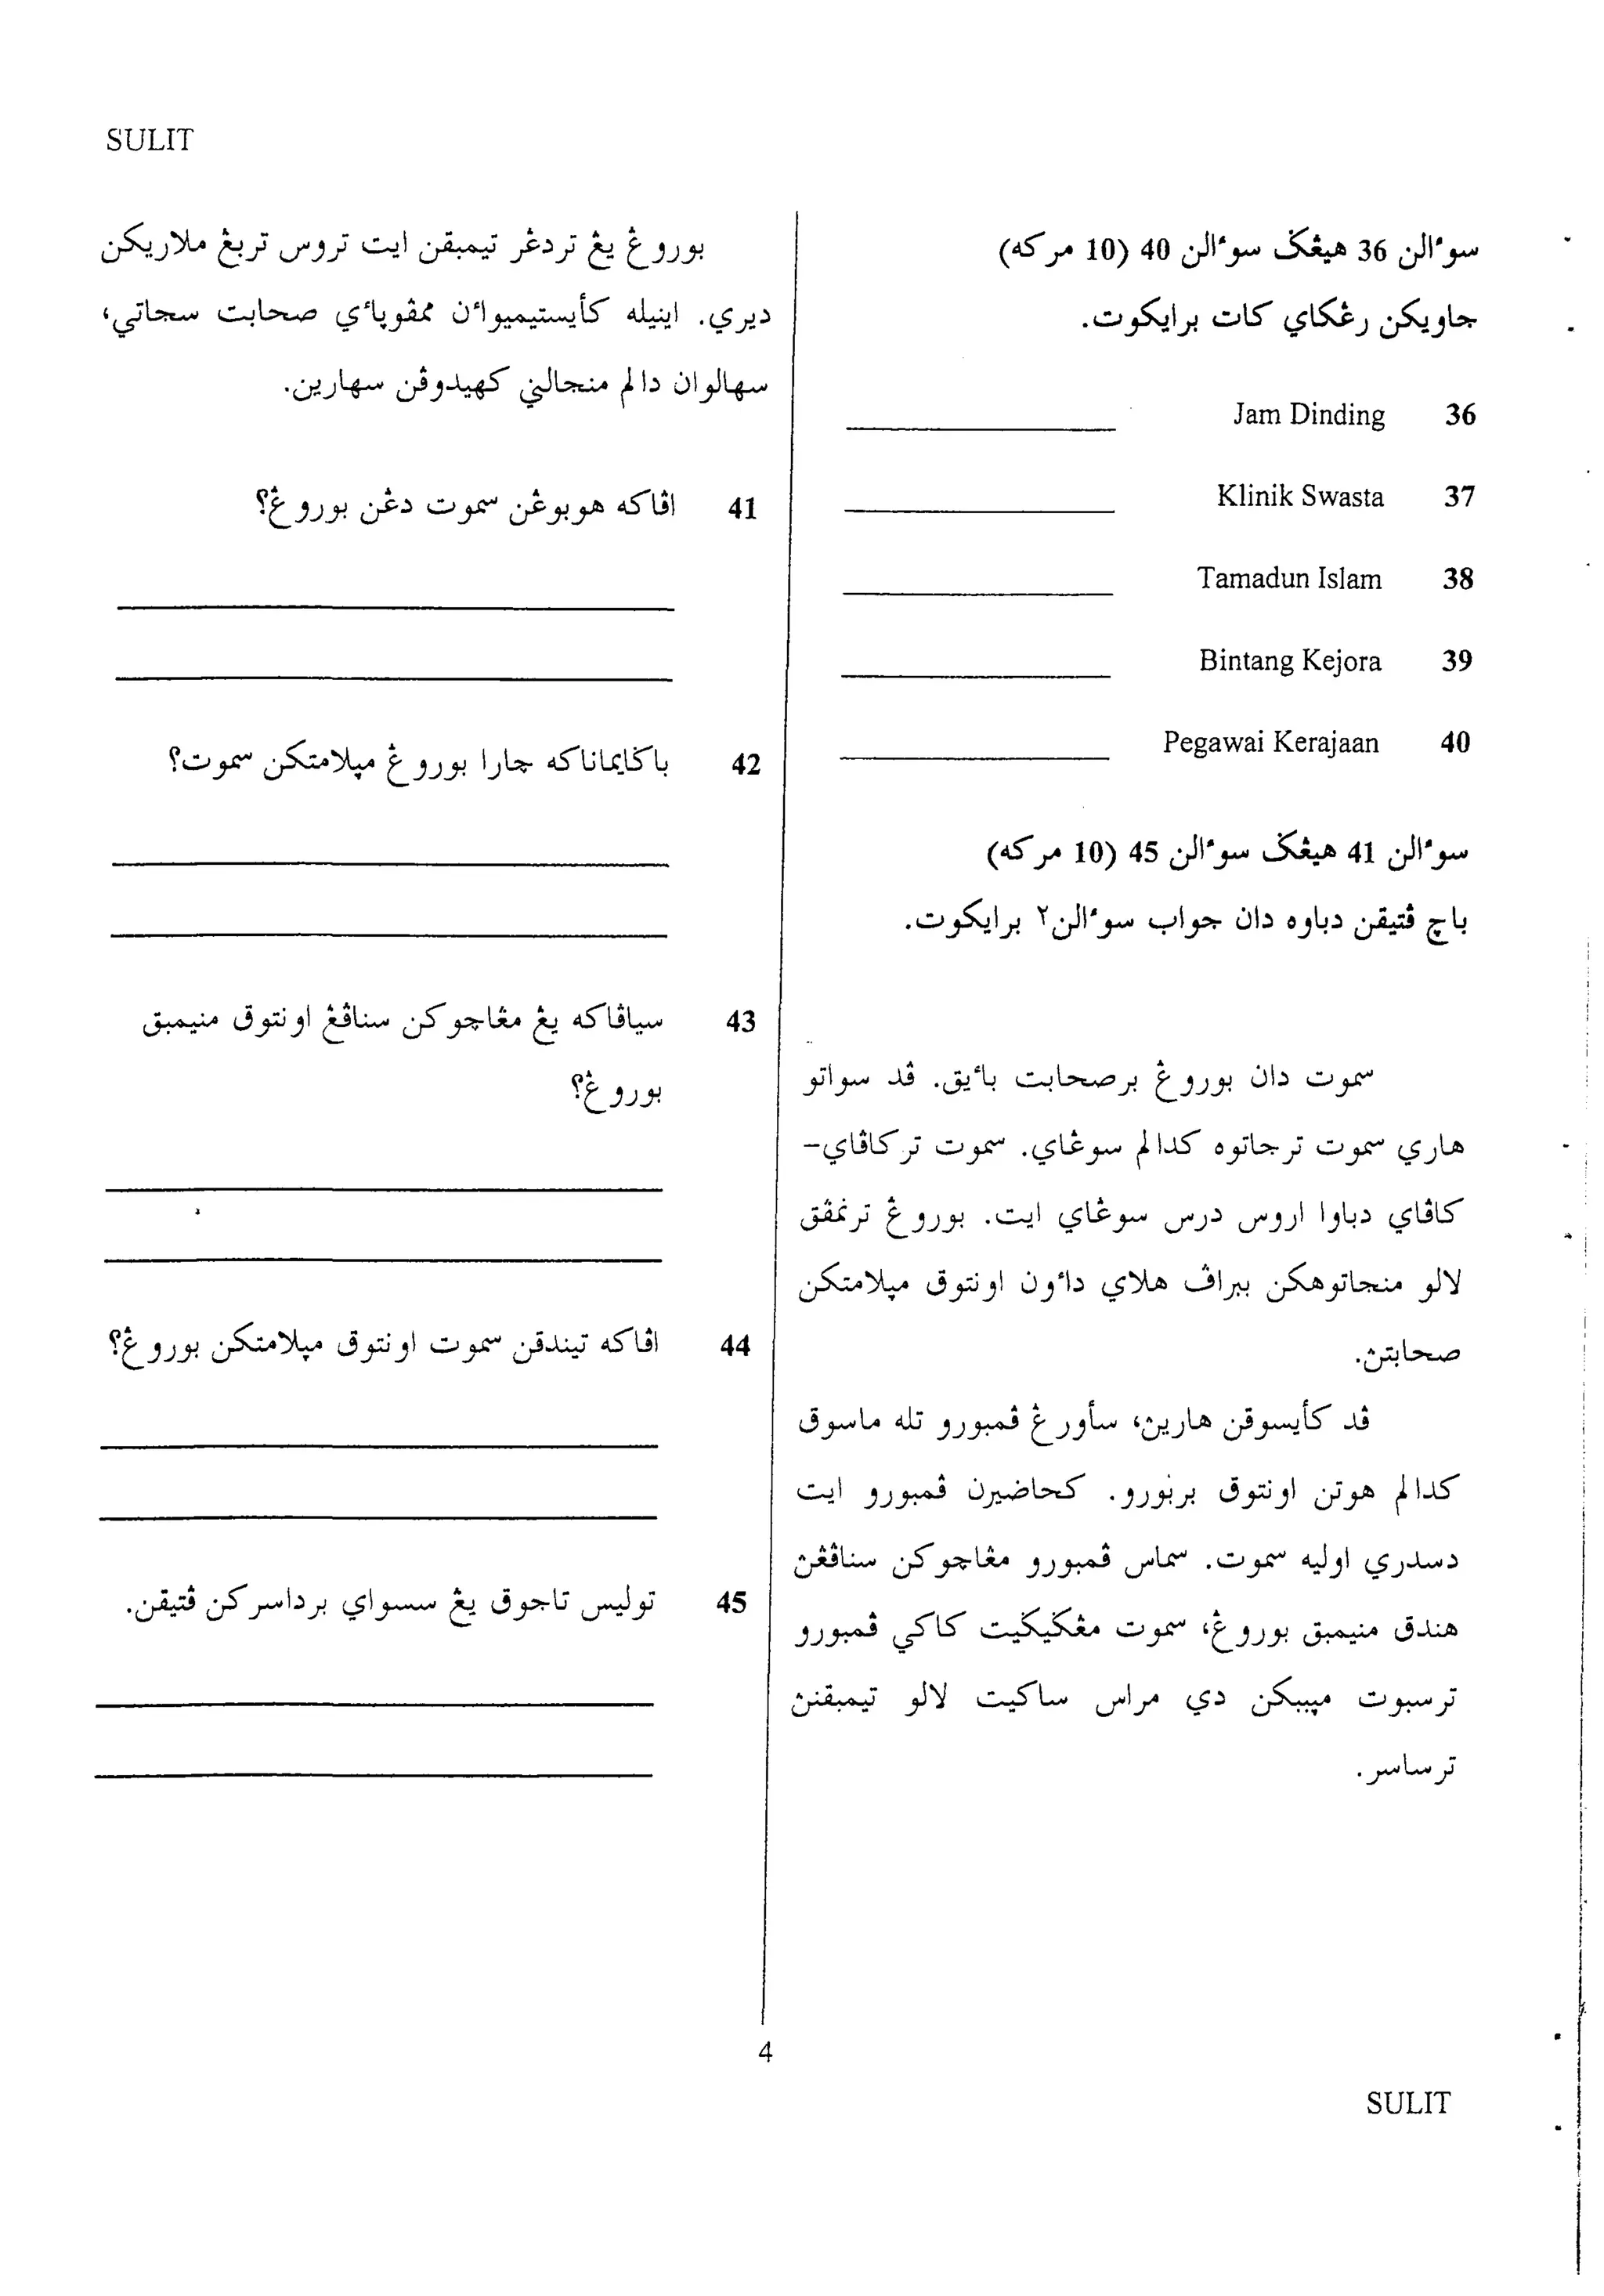 SULIT
سوءالن 36 هيڠݢ سوءالن 40 (10 مركه)
جاويكن رڠكاي كات برايكوت.
36 Jam Dinding
37 Klinik Swasta
38 Tamadun Islam
39 Bintang Kejora
40 Pegawai Kerajaan
سوءالن 41 هيڠݢ سوءالن 45 (10 مركه)
باچ ڤتيقن دباوه دان جواب سوءالن٢ برايكوت.
سموت دان بوروڠ برصحابت باءيق. ڤد سواتو
هاري سموت ترجاتوه كدالم سوڠاي. سموت تركاڤاي-
كاڤاي دباوا اروس درس سوڠاي ايت. بوروڠ ترنمڤق
لالو منجاتوهكن ببراڤ هلاي داءون اونتوق ميلامتكن
صحابتڽ.
ڤد كأيسوقن هاريڽ، سأورڠ ڤمبورو تله ماسوق
كدالم هوتن اونتوق بربورو. كحاضيرن ڤمبورو ايت
دسدري اوليه سموت. سماس ڤمبورو مڠاچوكن سناڤڠڽ
هندق منيمبق بوروڠ، سموت مڠݢيݢيت كاكي ڤمبورو
ترسبوت مپببكن دي مراس ساكيت لالو تيمبقنڽ
ترساسر.
بوروڠ يڠ تردڠر تيمبقن ايت تروس تربڠ ملاريكن
ديري. اينيله كأيستيميواءن ممڤوپاءي صحابت سجاتي،
سهالوان دالم منجالني كهيدوڤن سهارين.
41 اڤاكه هوبوڠن سموت دڠن بوروڠ؟
42 باݢايماناكه چارا بوروڠ مپلامتكن سموت؟
43 سياڤاكه يڠ مڠاچوكن سناڤڠ اونتوق منيمبق
بوروڠ؟
44 اڤاكه تيندقن سموت اونتوق مپلامتكن بوروڠ؟
45 توليس تاجوق يڠ سسواي برداسركن ڤتيقن.
4
SULIT